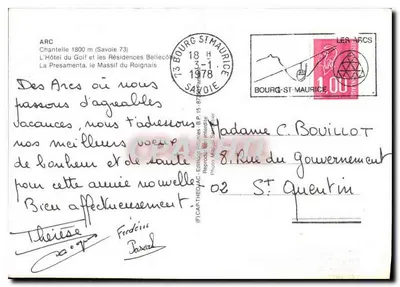 ARC
Chantelle 1800 m (Savoie 73)
L'Hôtel du Golf et les Résidences Bellecôte
La Presamenta, le Massif du Roignais
73 BOURG ST MAURICE
18 H
1978
SAVOIE
LES ARCS
BOURG-ST-MAURICE
1.00
Des Arcs où nous
passons d'agréables
vacances, nous t'adressons
nos meilleurs voeux
de bonheur et de santé
pour cette année nouvelle
Bien affectueusement.
Thérèse
Frédéric
Pascal
Madame C. BOUILLOT
8. Rue du Gouvernement
02 St Quentin